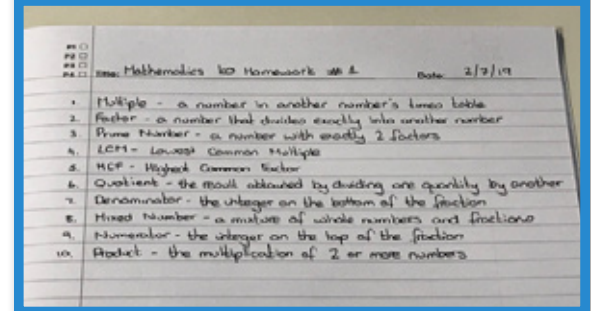 P1
P2
P3
P4 Title: Mathematics Homework # 1 Date: 2/7/19
1. Multiple - a number in another number's times table
2. Factor - a number that divides exactly into another number
3. Prime Number - a number with exactly 2 factors
4. LCM - Lowest Common Multiple
5. HCF - Highest Common Factor
6. Quotient - the result obtained by dividing one quantity by another
7. Denominator - the integer on the bottom of the fraction
8. Mixed Number - a mixture of whole numbers and fractions
9. Numerator - the integer on the top of the fraction
10. Product - the multiplication of 2 or more numbers